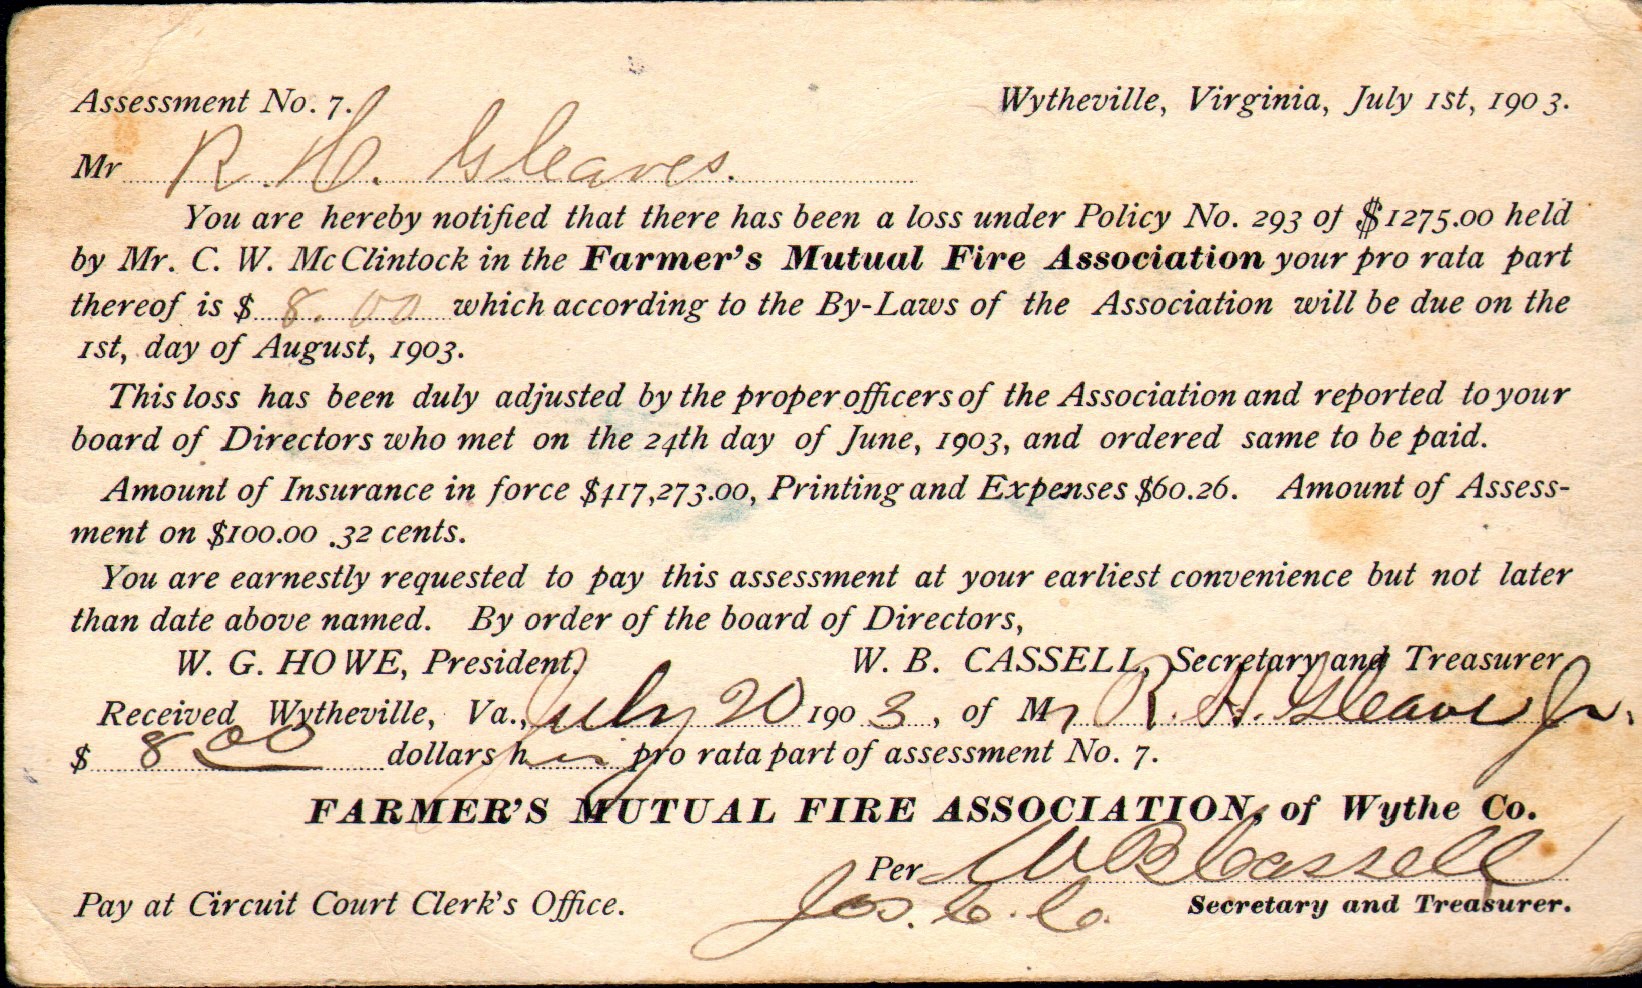 Assessment No. 7. Wytheville, Virginia, July 1st, 1903.
Mr R. H. Gleaves.
You are hereby notified that there has been a loss under Policy No. 293 of $1275.00 held
by Mr. C. W. McClintock in the Farmer's Mutual Fire Association your pro rata part
thereof is $ 8.00 which according to the By-Laws of the Association will be due on the
1st, day of August, 1903.
This loss has been duly adjusted by the proper officers of the Association and reported to your
board of Directors who met on the 24th day of June, 1903, and ordered same to be paid.
Amount of Insurance in force $417,273.00, Printing and Expenses $60.26. Amount of Assess-
ment on $100.00 .32 cents.
You are earnestly requested to pay this assessment at your earliest convenience but not later
than date above named. By order of the board of Directors,
W. G. HOWE, President. W. B. CASSELL, Secretary and Treasurer
Received Wytheville, Va., July 20 1903, of Mr R. H. Gleaves Jr.
$ 8 00 dollars his pro rata part of assessment No. 7.
FARMER'S MUTUAL FIRE ASSOCIATION, of Wythe Co.
Per W B Cassell
Pay at Circuit Court Clerk's Office. Secretary and Treasurer.